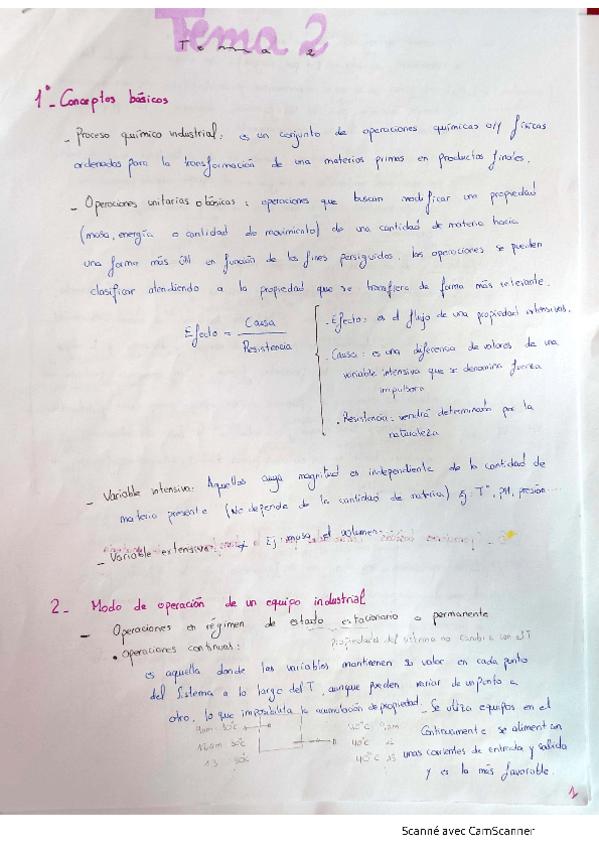 Tema 2
Tema 2
1º- Conceptos básicos
- Proceso químico industrial: es un conjunto de operaciones químicas o/y físicas
ordenadas para la transformación de una materias primas en productos finales.
- Operaciones unitarias o básicas: operaciones que buscan modificar una propiedad
(masa, energía o cantidad de movimiento) de una cantidad de materia hacia
una forma más útil en función de los fines perseguidos. Las operaciones se pueden
clasificar atendiendo a la propiedad que se transfiera de forma más relevante.
Efecto = Causa / Resistencia
. Efecto: es el flujo de una propiedad extensivas.
. Causa: es una diferencia de valores de una
variable intensiva que se denomina fuerza
impulsora
. Resistencia: vendrá determinada por la
naturaleza
- Variable intensiva: Aquellas cuya magnitud es independiente de la cantidad de
materia presente (No depende de la cantidad de materia) Ej: Tº, pH, presión...
- Variable extensiva: Ej: masa, el volumen.
2- Modo de operación de un equipo industrial
- Operaciones en régimen de estado estacionario o permanente
• Operaciones continuas: Propiedad del sistema no cambia con
es aquella donde las variables mantienen su valor en cada punto
del sistema a lo largo del T, aunque pueden variar de un punto a
otro, lo que imposibilita la acumulación de propiedad. Se utiliza equipos en el
9am 30ºc 40ºc 9am
Continuamente se alimentan
30ºc 40ºc
unas corrientes de entrada y salida
13 30ºc 40ºc
y es la más favorable.
1
Scanné avec CamScanner